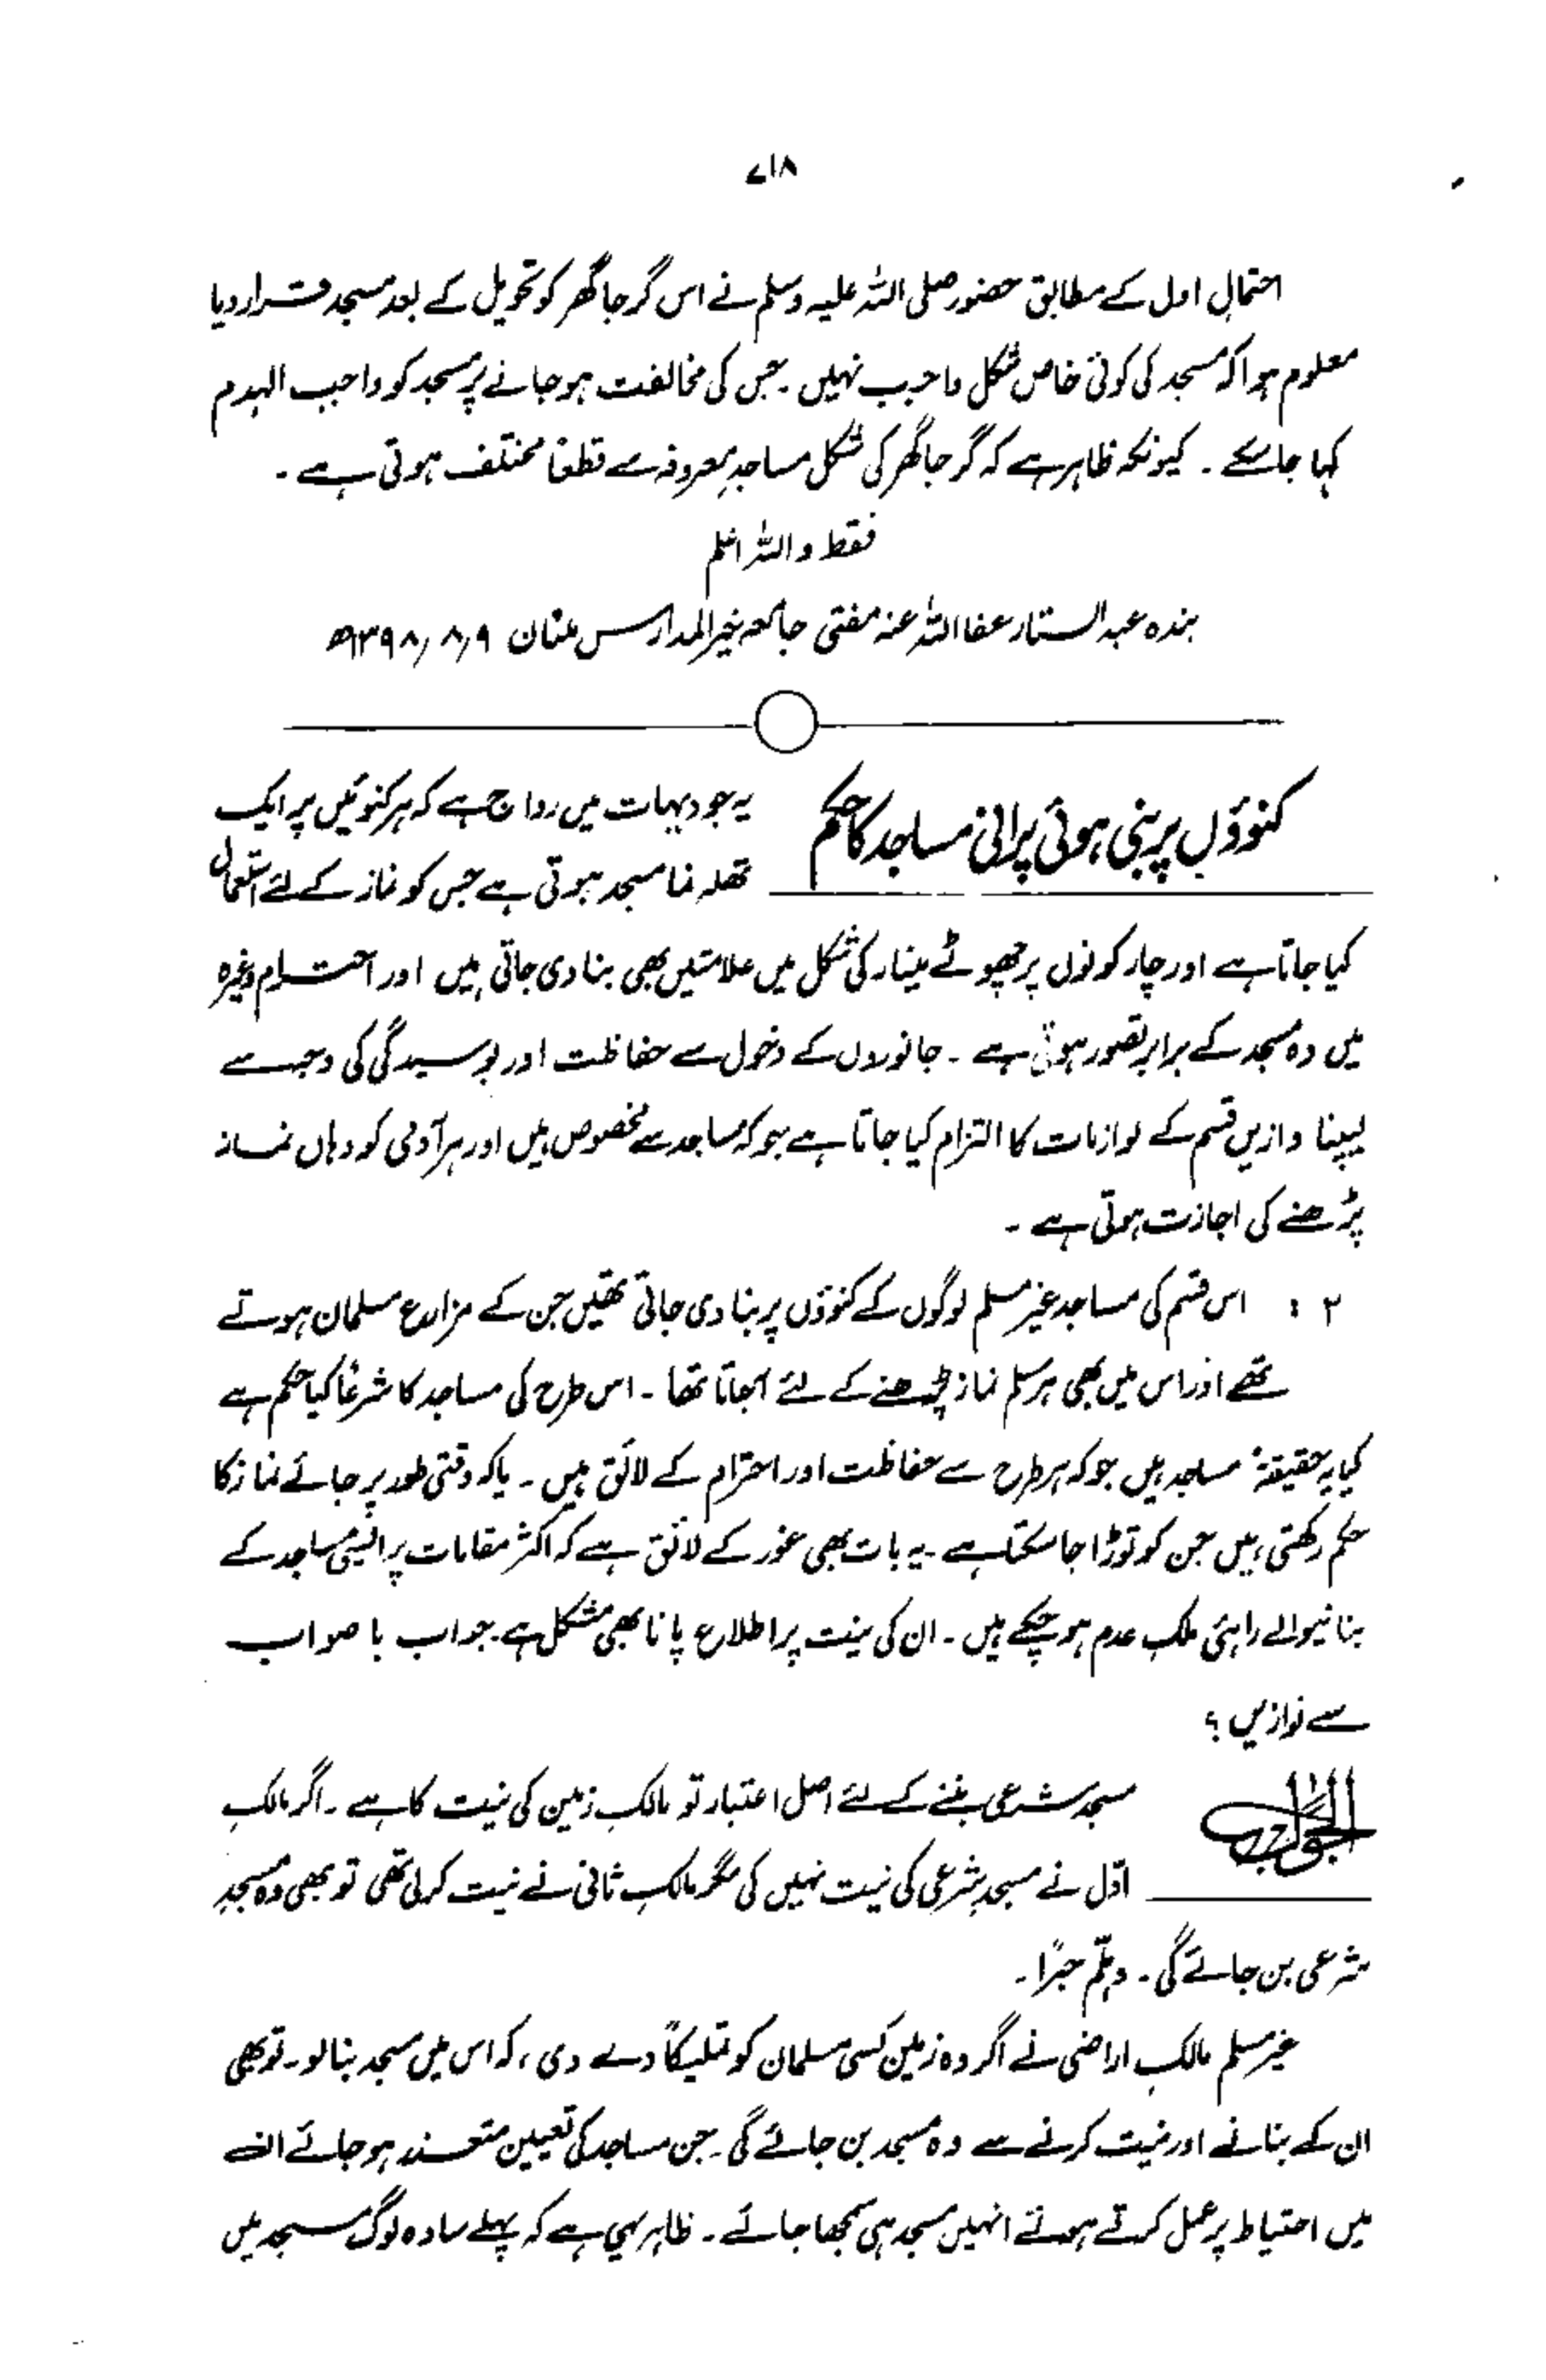 ۷۱۸
احتمالِ اول کے مطابق حضور صلی اللہ علیہ وسلم نے اس گرجا گھر کو تحویل کے بعد مسجد قرار دیا
معلوم ہوا کہ مسجد کی کوئی خاص شکل واجب نہیں ۔ جس کی مخالفت ہو جانے پر مسجد کو واجب الہدم
کہا جا سکے ۔ کیونکہ ظاہر ہے کہ گرجا گھر کی شکل مساجدِ معروفہ سے قطعًا مختلف ہوتی ہے ۔
فقط واللہ اعلم
بندہ عبد الستار عفا اللہ عنہ مفتی جامعہ خیر المدارس ملتان ۹/۸/۱۳۹۸ھ
کنوؤں پر بنی ہوئی پرانی مساجد کا حکم
یہ جو دیہات میں رواج ہے کہ ہر کنوئیں پر ایک
تھلہ نما مسجد ہوتی ہے جس کو نماز کے لئے استعمال
کیا جاتا ہے اور چار کونوں پر چھوٹے مینار کی شکل میں علامتیں بھی بنا دی جاتی ہیں اور احترام وغیرہ
میں وہ مسجد کے برابر تصور ہوتی ہے ۔ جانوروں کے دخول سے حفاظت اور بوسیدگی کی وجہ سے
لیپنا وازیں قسم کے لوازمات کا التزام کیا جاتا ہے جو کہ مساجد سے مخصوص ہیں اور ہر آدمی کو وہاں نماز
پڑھنے کی اجازت ہوتی ہے ۔
۲ : اس قسم کی مساجد غیر مسلم لوگوں کے کنوؤں پر بنا دی جاتی تھیں جن کے مزارع مسلمان ہوتے
تھے اور اس میں بھی ہر مسلم نماز پڑھنے کے لئے آجاتا تھا ۔ اس طرح کی مساجد کا شرعًا کیا حکم ہے
کیا یہ حقیقۃً مساجد ہیں جو کہ ہر طرح سے حفاظت اور احترام کے لائق ہیں ۔ یا کہ وقتی طور پر جائے نماز کا
حکم رکھتی ہیں جن کو توڑا جا سکتا ہے ۔ یہ بات بھی غور کے لائق ہے کہ اکثر مقامات پر ایسی مساجد کے
بنانیوالے راہئی ملکِ عدم ہو چکے ہیں ۔ ان کی نیت پر اطلاع پانا بھی مشکل ہے ۔ جواب با صواب
سے نوازیں ؟
الجواب
مسجد شرعی بننے کے لئے اصل اعتبار تو مالکِ زمین کی نیت کا ہے ۔ اگر مالکِ
اوّل نے مسجدِ شرعی کی نیت نہیں کی مگر مالکِ ثانی نے نیت کر لی تھی تو بھی وہ مسجدِ
شرعی بن جائے گی ۔ وہلمّ جرًا ۔
غیر مسلم مالکِ اراضی نے اگر وہ زمین کسی مسلمان کو تملیکًا دے دی ، کہ اس میں مسجد بنا لو ۔ تو بھی
ان کے بنانے اور نیت کرنے سے وہ مسجد بن جائے گی ۔ جن مساجد کی تعیین متعسر ہو جائے ان
میں احتیاط پر عمل کرتے ہوئے انہیں مسجد ہی سمجھا جائے ۔ ظاہر یہی ہے کہ پہلے سادہ لوگ مسجد میں